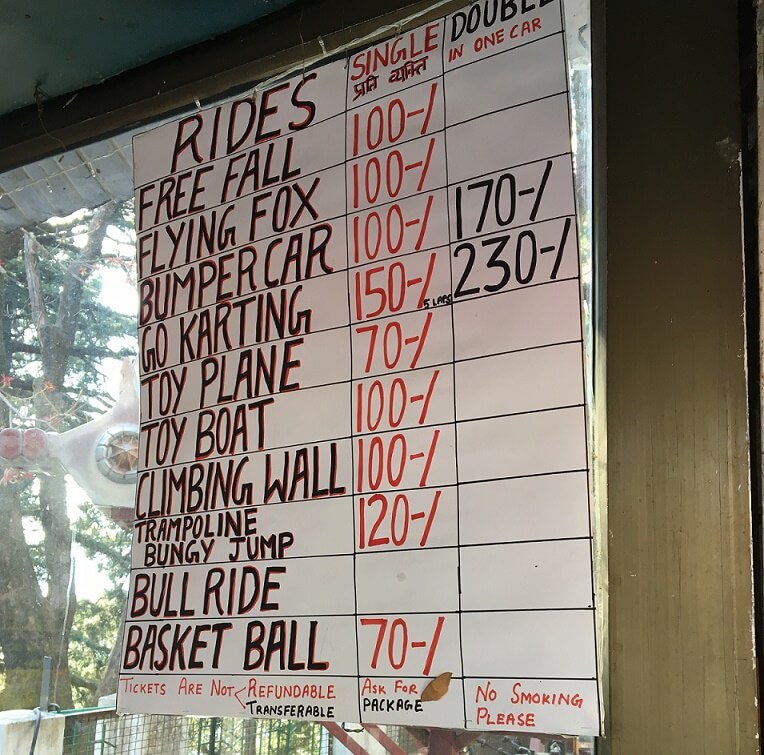 RIDES SINGLE DOUBLE
प्रति व्यक्ति IN ONE CAR
FREE FALL 100-/
FLYING FOX 100-/
BUMPER CAR 100-/ 170-/
GO KARTING 150-/ 5 LAPS 230-/
TOY PLANE 70-/
TOY BOAT 100-/
CLIMBING WALL 100-/
TRAMPOLINE
BUNGY JUMP 120-/
BULL RIDE
BASKET BALL 70-/
TICKETS ARE NOT REFUNDABLE
TRANSFERABLE
ASK FOR
PACKAGE
NO SMOKING
PLEASE